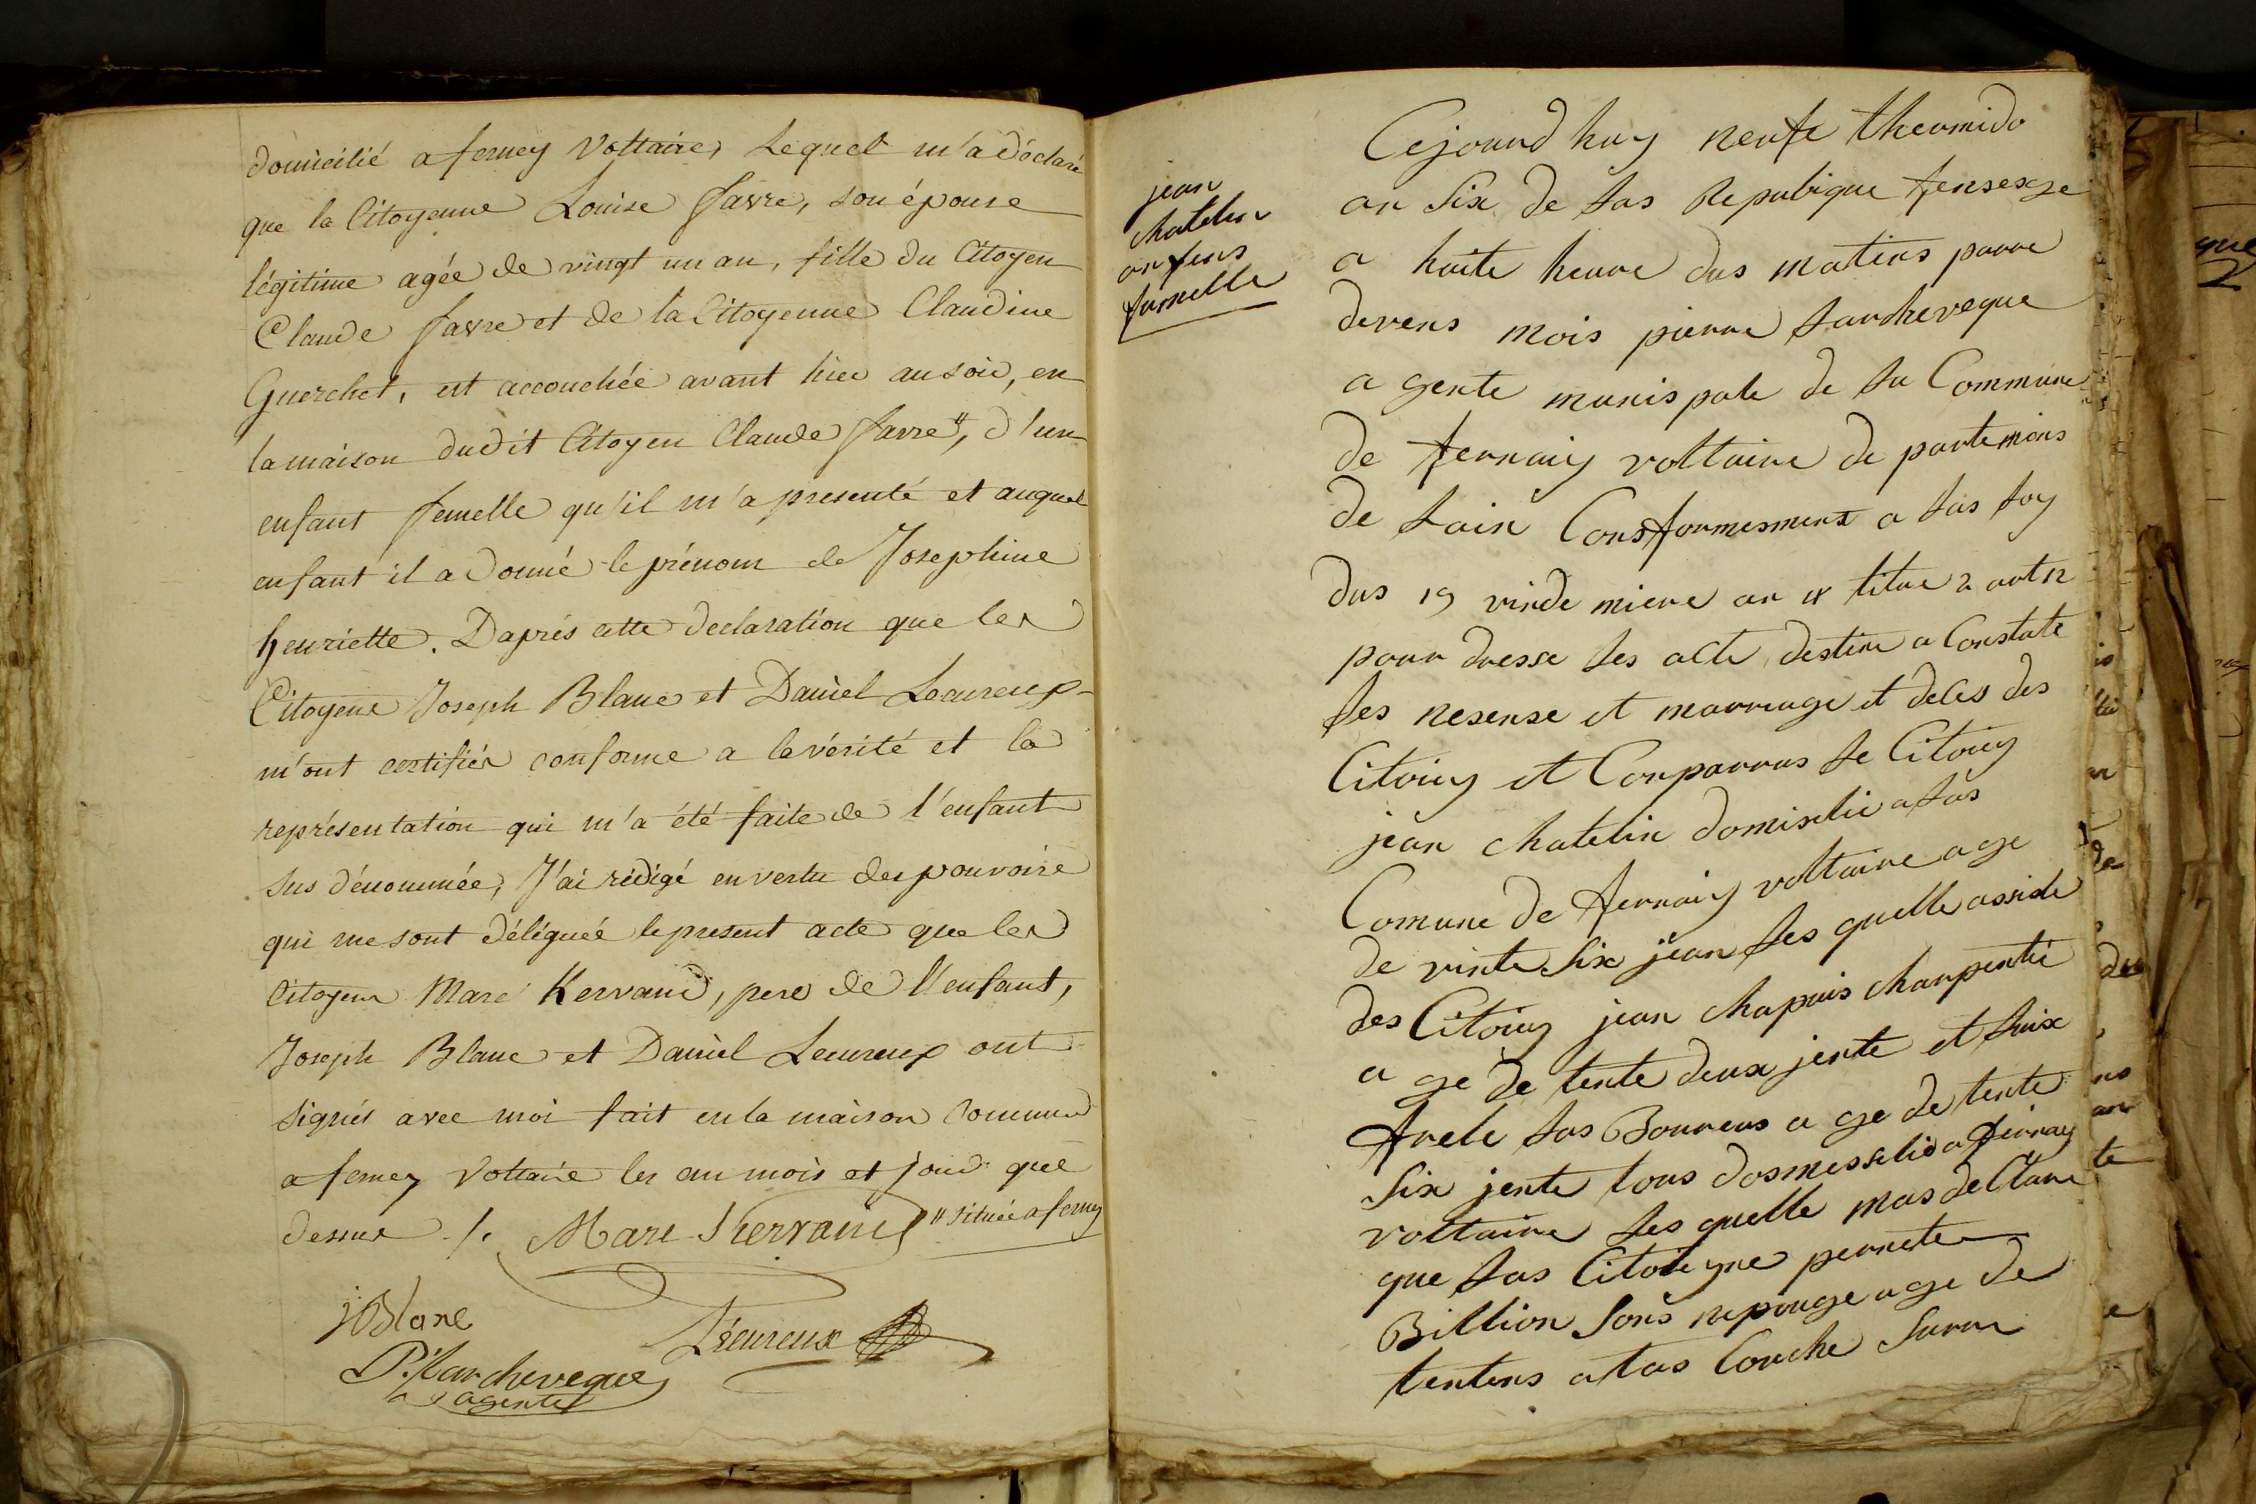 domicilié a ferney Voltaire, Lequel m'a déclaré
que la Citoyenne Louise favre, son épouse
légitime agée de vingt un an, fille du Citoyen
Claude favre et de la Citoyenne Claudine
Guerchet, est accouchée avant hier au soir, en
la maison dudit Citoyen Claude favre", d'un
enfant femelle qu'il m'a presenté et auquel
enfant il a donné le prénom de Josephine
henriette. Daprés cette declaration que les
Citoyens Joseph Blanc et Daniel Lecureux
m'ont certifiés conforme a la vérité et la
représentation qui m'a été faite de l'enfant
sus dénommée, J'ai rédigé en vertu des pouvoirs
qui me sont délégués le present acte que les
Citoyens Marc Kervand, pere de l'enfant,
Joseph Blanc et Daniel Lecureux ont
signés avec moi fait en la maison Commune
a ferney Voltaire les an mois et jour que
dessus ./. Marc Kervand " située a ferney
j Blanc
Lécureux
P. Larcheveque
agente
jean
chatelin
an fens
fumelle
Cejourd huy neufe thermido
an Six de Las Republique fensexse
a huite heure dus matins parre
devens mois pierre Larcheveque
a gente munis pale de La Commune
de fernaiy voltaire de partemens
de Lain Consformesment a Las Loy
dus 19 vinde miere an 4 titre 2 art 12
pour dresse Les acte destine a Constate
Les nesense et marriage et deces des
Citoiy et Conparrus Le Citoiy
jean chatelin domiselie a Las
Comune de fernaiy voltaire age
de vinte Six jean Les quelle asside
des Citoiy jean chapuis charpentié
a ge de tente deux jente et Luix
frele Las Bourens a ge de tente
Six jente tous dosmesselié a fernay
voltaire Les quelle mas declare
que Las Citoie yne pernete
Billion Sons nepouge age de
tentens atas Couche Surre